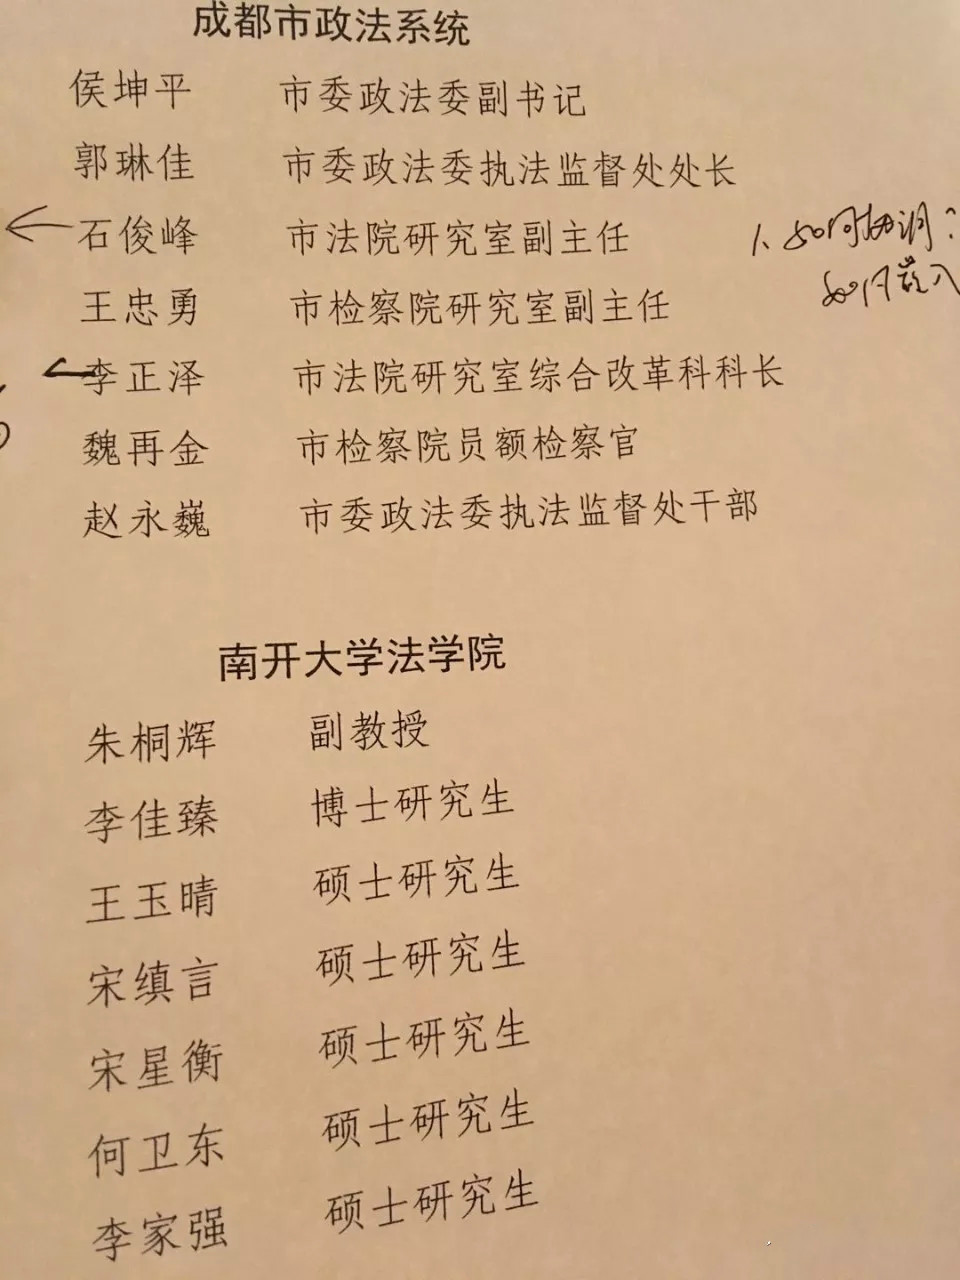 成都市政法系统
侯坤平 市委政法委副书记
郭琳佳 市委政法委执法监督处处长
石俊峰 市法院研究室副主任
1、如何协调?
王忠勇 市检察院研究室副主任
如何
李正泽 市法院研究室综合改革科科长
魏再金 市检察院员额检察官
赵永巍 市委政法委执法监督处干部
南开大学法学院
朱桐辉 副教授
李佳臻 博士研究生
王玉晴 硕士研究生
宋缜言 硕士研究生
宋星衡 硕士研究生
何卫东 硕士研究生
李家强 硕士研究生